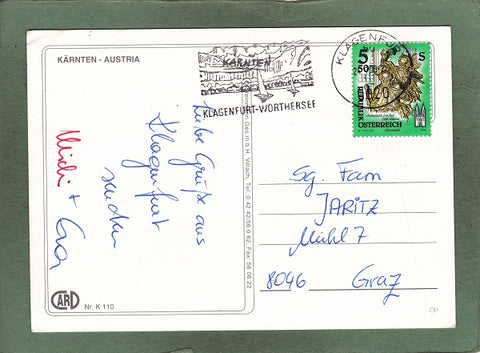 KÄRNTEN - AUSTRIA
Liebe Grüße aus
Klagenfurt
senden
Michi +
Nr. K 110
CARD
Ges.m.b.H. Villach, Tel. 0 42 42/56 0 62, Fax. 56 06 22
KÄRNTEN
KLAGENFURT-WÖRTHERSEE
KLAGENFURT
5 S
REPUBLIK
ÖSTERREICH
Sg. Fam
JARITZ
Mühl 7
8046 Graz